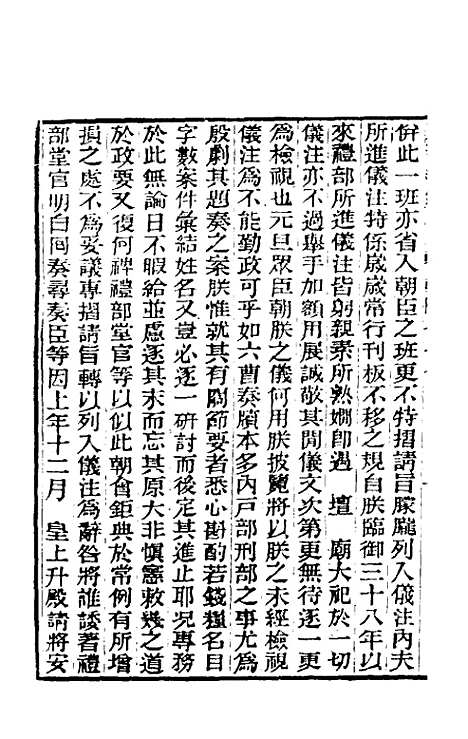 併此一班亦省入朝臣之班更不特摺請旨朦朧列入儀注內夫
所進儀注特係歲歲常行刊板不移之規自朕臨御三十八年以
來禮部所進儀注皆躬親素所熟嫺卽遇　壇　廟大祀於一切
儀注亦不過舉手加額用展誠敬其間儀文次第更無待逐一更
為檢視也元旦眾臣朝朕之儀何用朕披覽將以朕之未經檢視
儀注為不能勤政可乎如六曹奏牘本多內戸部刑部之事尤為
殷劇其題奏之案朕惟就其有關節要者悉心斟酌若錢糧名目
字數案件彙結姓名又豈必逐一研討而後定其進止耶況專務
於此無論日不暇給並慮逐其末而忘其原大非愼憲救幾之道
於政要又復何裨禮部堂官等以似此朝會鉅典於常例有所增
損之處不為妥議專摺請旨轉以列入儀注為辭咎將誰諉著禮
部堂官明白囘奏尋奏臣等因上年十二月　皇上升殿請將安